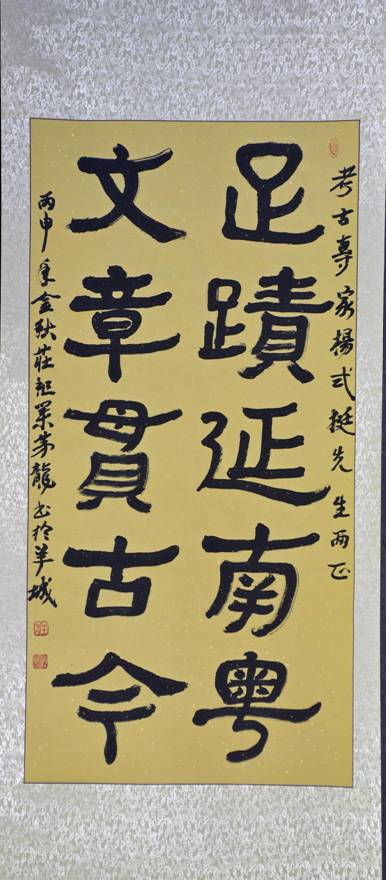 考古專家楊式挺先生两正
足蹟延南粤
文章貫古今
丙申年金秋莊恕業茅龍书於羊城